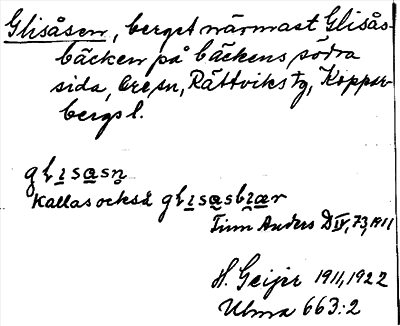 Glisåsen, berget närmast Glisås-
bäcken på bäckens södra
sida, Ore sn, Rättviks tg, Koppar-
bergs l.
glisasn
Kallas också glisasbiær
Finn Anders D IV, 73, 1911
H. Geijer 1911, 1922
Ulma 663:2